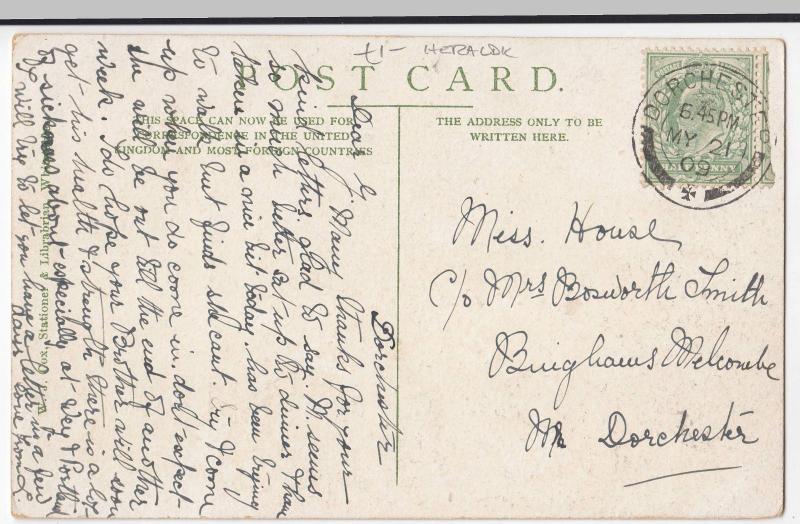 £1- HERALDIC
POST CARD.
THIS SPACE CAN NOW BE USED FOR
CORRESPONDENCE IN THE UNITED
KINGDOM AND MOST FOREIGN COUNTRIES
THE ADDRESS ONLY TO BE
WRITTEN HERE.
DORCHESTER
6.45 PM
MY 21
09
PENNY
Miss. House
C/o Mrs Bosworth Smith
Binghams Melcombe
Nr Dorchester
Dorchester
Dear G. Many thanks for your
kind letters. glad to say M. seems
so much better sat up to dinner & has
taken a nice bit today. has been trying
to walk but finds she cant. Try & come
up when you do come in. dont expect
she will be out till the end of another
week. I do hope your Brother will soon
get his health & strength there is a lot
of sickness about - especially at Wey & Portland
I will try to let you have a letter in a few
days Love from L.
Cox, Stationer & Librarian